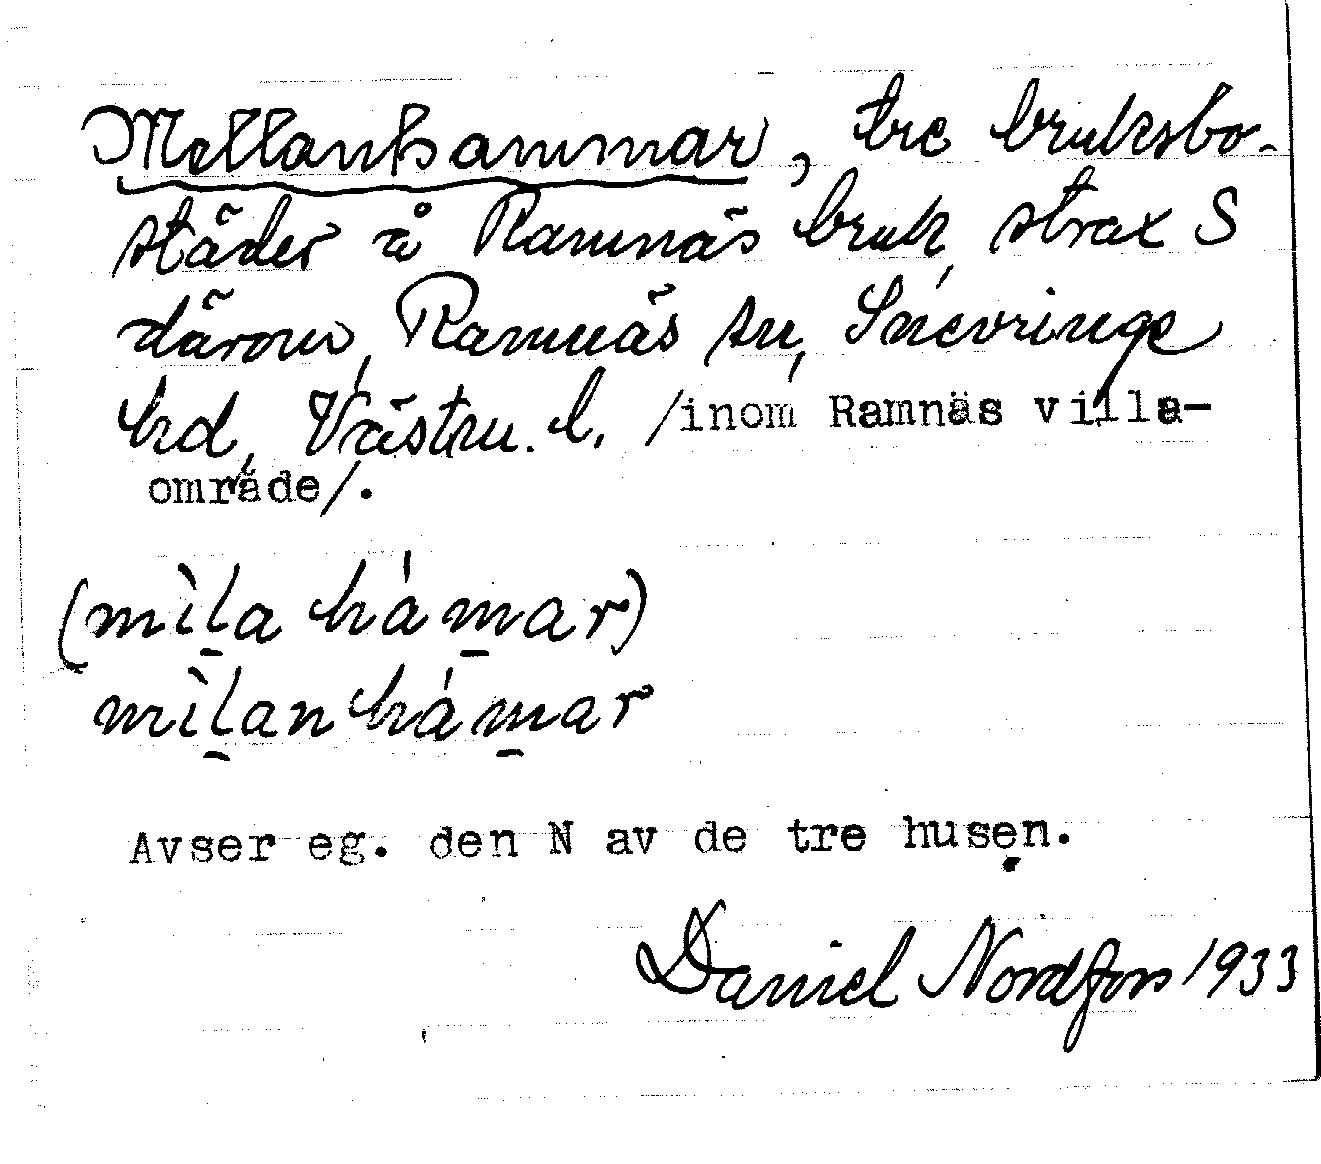 Mellanhammar, tre bruksbo-
städer å Ramnäs bruk, strax S
därom, Ramnäs sn, Snevringe
hd, Västm. l. /inom Ramnäs villa-
område/.
(mìl̲a hám̲ar)
mìl̲an hám̲ar
Avser eg. den N av de tre husen.
Daniel Nordfors 1933